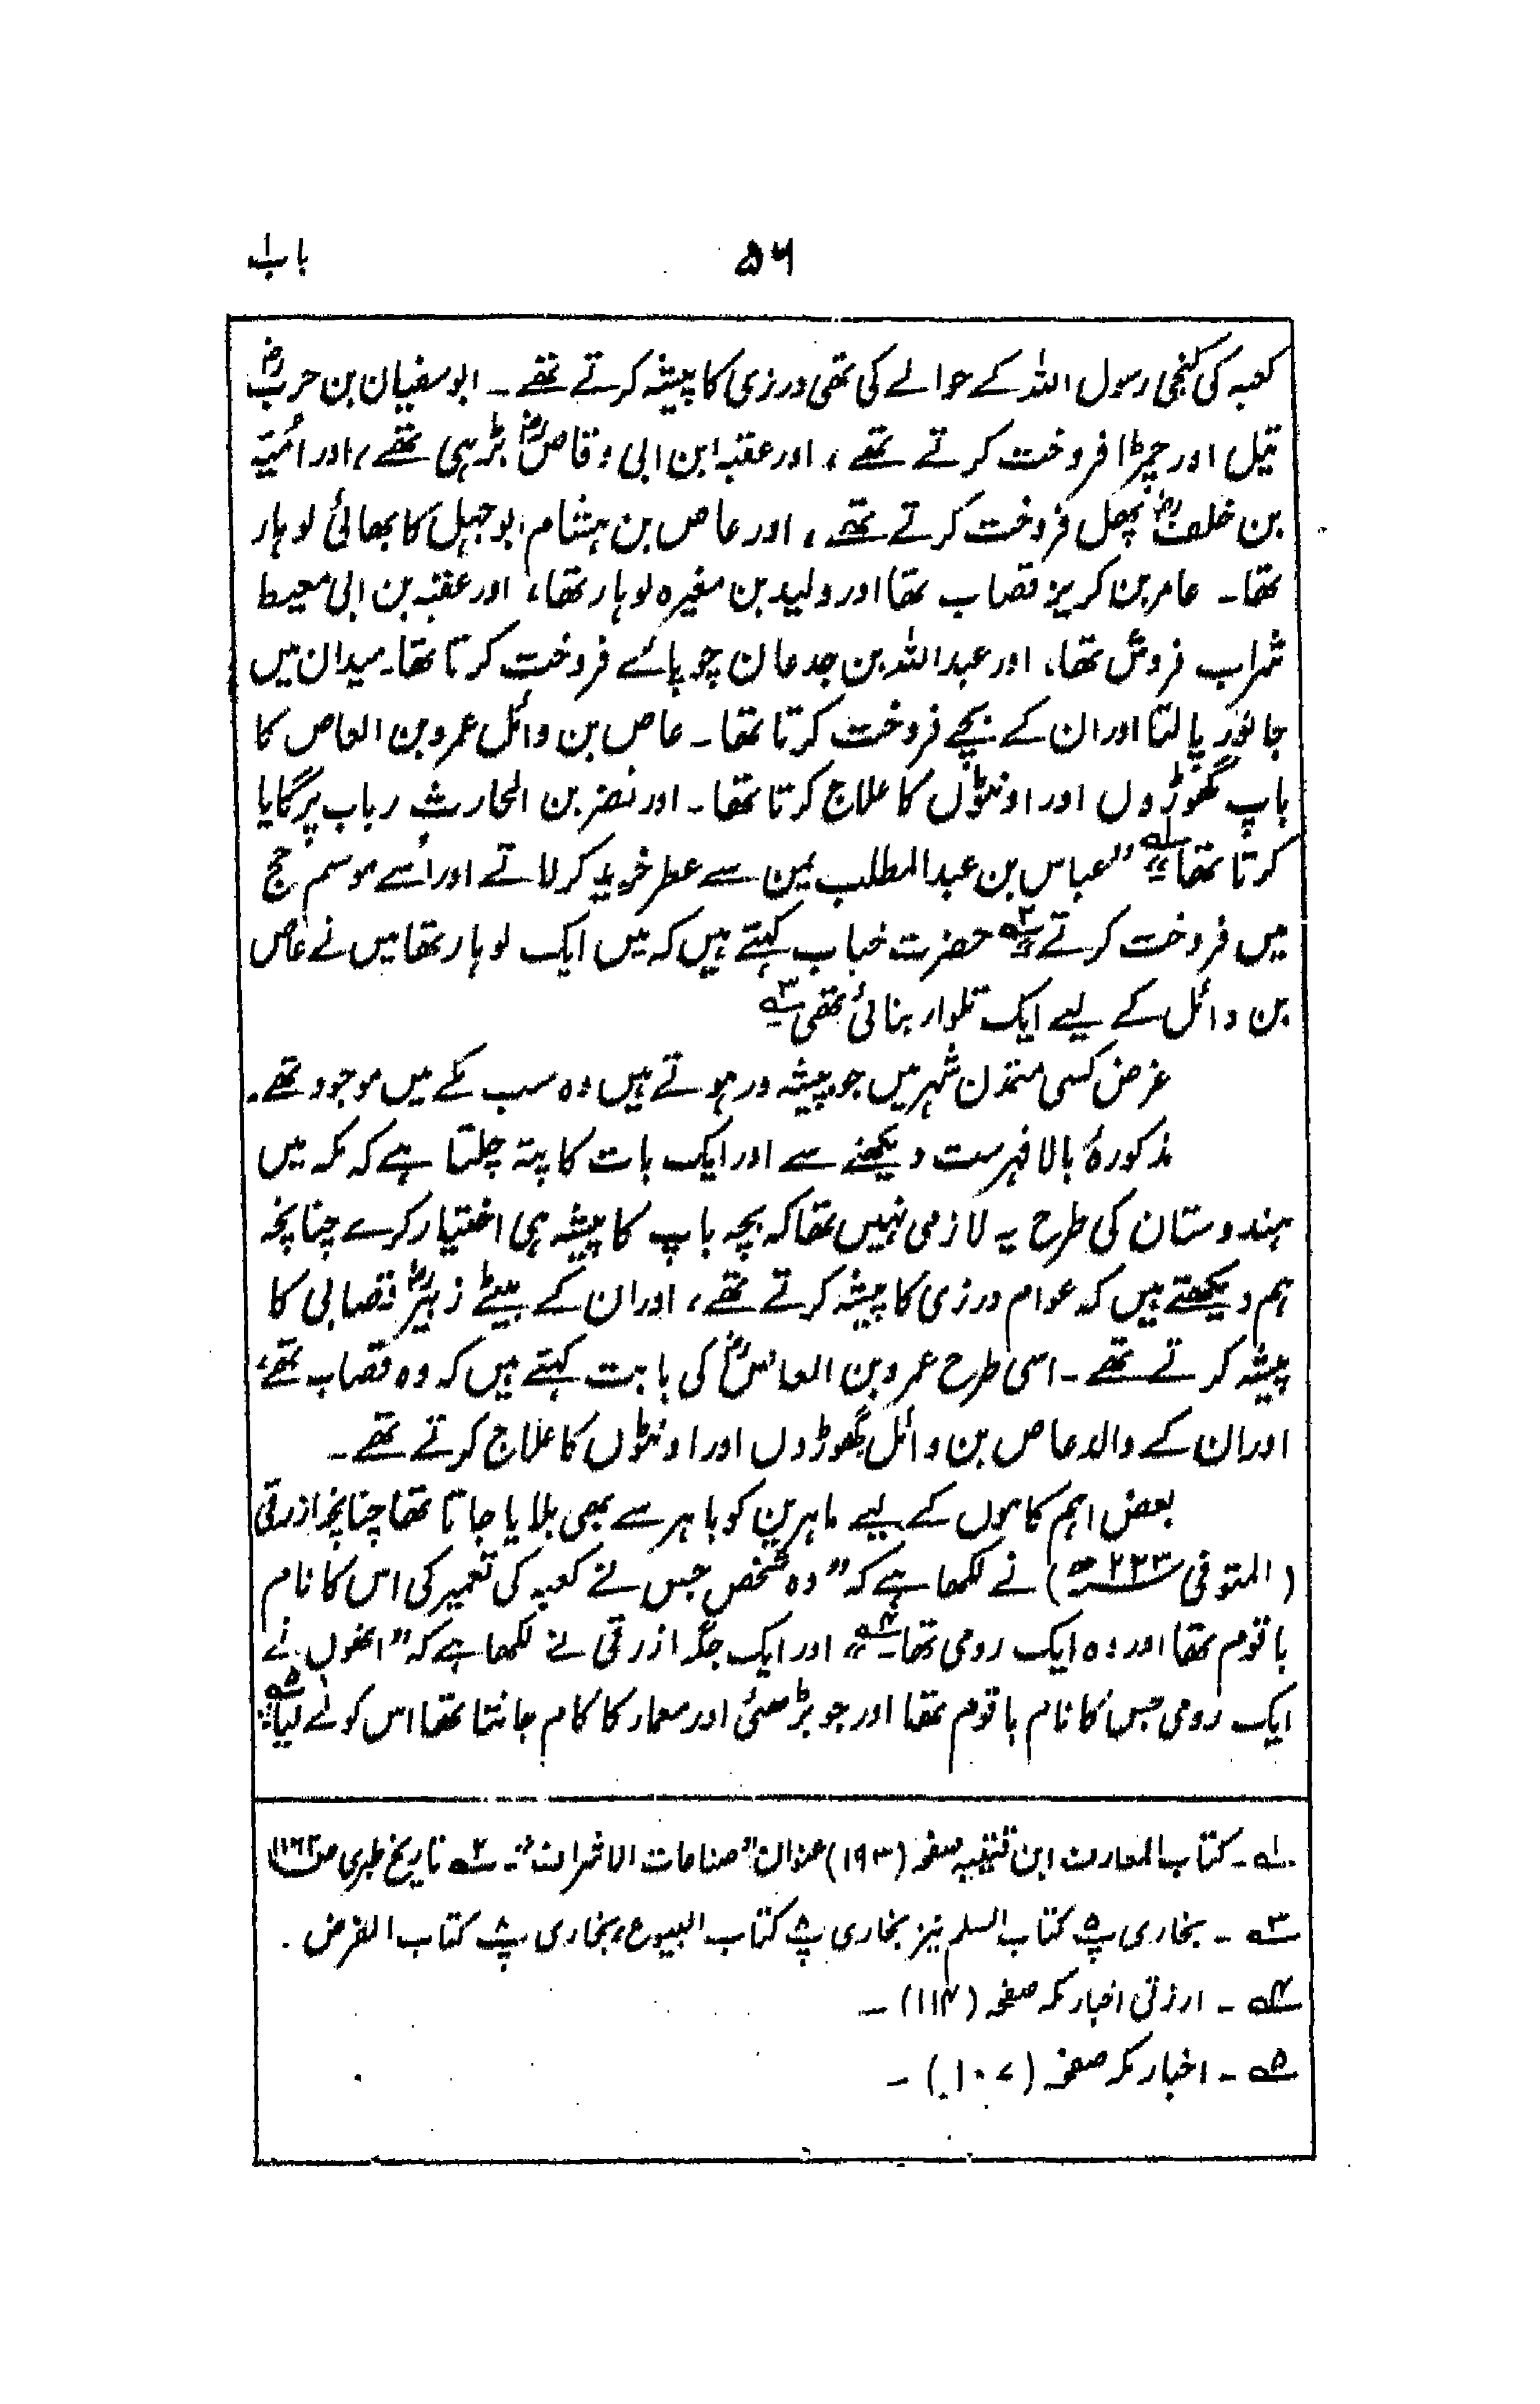 باب ۱
۵۶
کعبہ کی کنجی رسول اللہ کے حوالے کی تھی درزی کا پیشہ کرتے تھے۔ ابو سفیان بن حربؓ
تیل اور چمڑا فروخت کرتے تھے، اور عقبہ ابن ابی وقاصؓ بڑہی تھے، اور امُیّہ
بن خلفؓ پھل فروخت کرتے تھے، اور عاص بن ہشام ابوجہل کا بھائی لوہار
تھا۔ عامر بن کریز قصاب تھا اور ولید بن مغیرہ لوہار تھا، اور عقبہ بن ابی معیط
شراب فروش تھا، اور عبداللہ بن جدعان چوپائے فروخت کرتا تھا۔ میدان میں
جانور پالتا اور ان کے بچے فروخت کرتا تھا۔ عاص بن وائل عمرو بن العاص کا
باپ گھوڑوں اور اونٹوں کا علاج کرتا تھا۔ اور نضر بن الحارث رباب پر گایا
کرتا تھا۔“ ؎۱ ”عباس بن عبدالمطلب یمن سے عطر خرید کر لاتے اور اُسے موسم حج
میں فروخت کرتے“ ؎۲ حضرت خباب کہتے ہیں کہ میں ایک لوہار تھا میں نے عاص
بن وائل کے لیے ایک تلوار بنائی تھی ؎۳
غرض کسی متمدن شہر میں جو پیشہ ور ہوتے ہیں وہ سب مکے میں موجود تھے۔
مذکورۂ بالا فہرست دیکھنے سے اور ایک بات کا پتہ چلتا ہے کہ مکہ میں
ہندوستان کی طرح یہ لازمی نہیں تھا کہ بچہ باپ کا پیشہ ہی اختیار کرے چنانچہ
ہم دیکھتے ہیں کہ عوام درزی کا پیشہ کرتے تھے، اور ان کے بیٹے زبیرؓ قصابی کا
پیشہ کرتے تھے۔ اسی طرح عمرو بن العاصؓ کی بابت کہتے ہیں کہ وہ قصاب تھے،
اور ان کے والد عاص بن وائل گھوڑوں اور اونٹوں کا علاج کرتے تھے۔
بعض اہم کاموں کے لیے ماہرین کو باہر سے بھی بلایا جاتا تھا چنانچہ ازرقی
(المتوفی ۲۲۳ھ) نے لکھا ہے کہ ”وہ شخص جس نے کعبہ کی تعمیر کی اس کا نام
باقوم تھا اور وہ ایک رومی تھا۔“ ؎۴ اور ایک جگہ ازرقی نے لکھا ہے کہ ”انھوں نے
ایک رومی جس کا نام باقوم تھا اور جو بڑھئی اور معمار کا کام جانتا تھا اس کو لے لیا“ ؎۵
؎۱۔ کتاب المعارف ابن قتیبہ صفحہ (۱۹۳) عنوان ”صناعات الاشراف“۔ ؎۲ تاریخ طبری ص ۱۱۶۲
؎۳۔ بخاری پ کتاب السلم نیز بخاری پ کتاب البیوع، بخاری پ کتاب القرض۔
؎۴۔ ارزقی اخبار مکہ صفحہ (۱۱۴)۔
؎۵۔ اخبار مکہ صفحہ (۱۰۷)۔